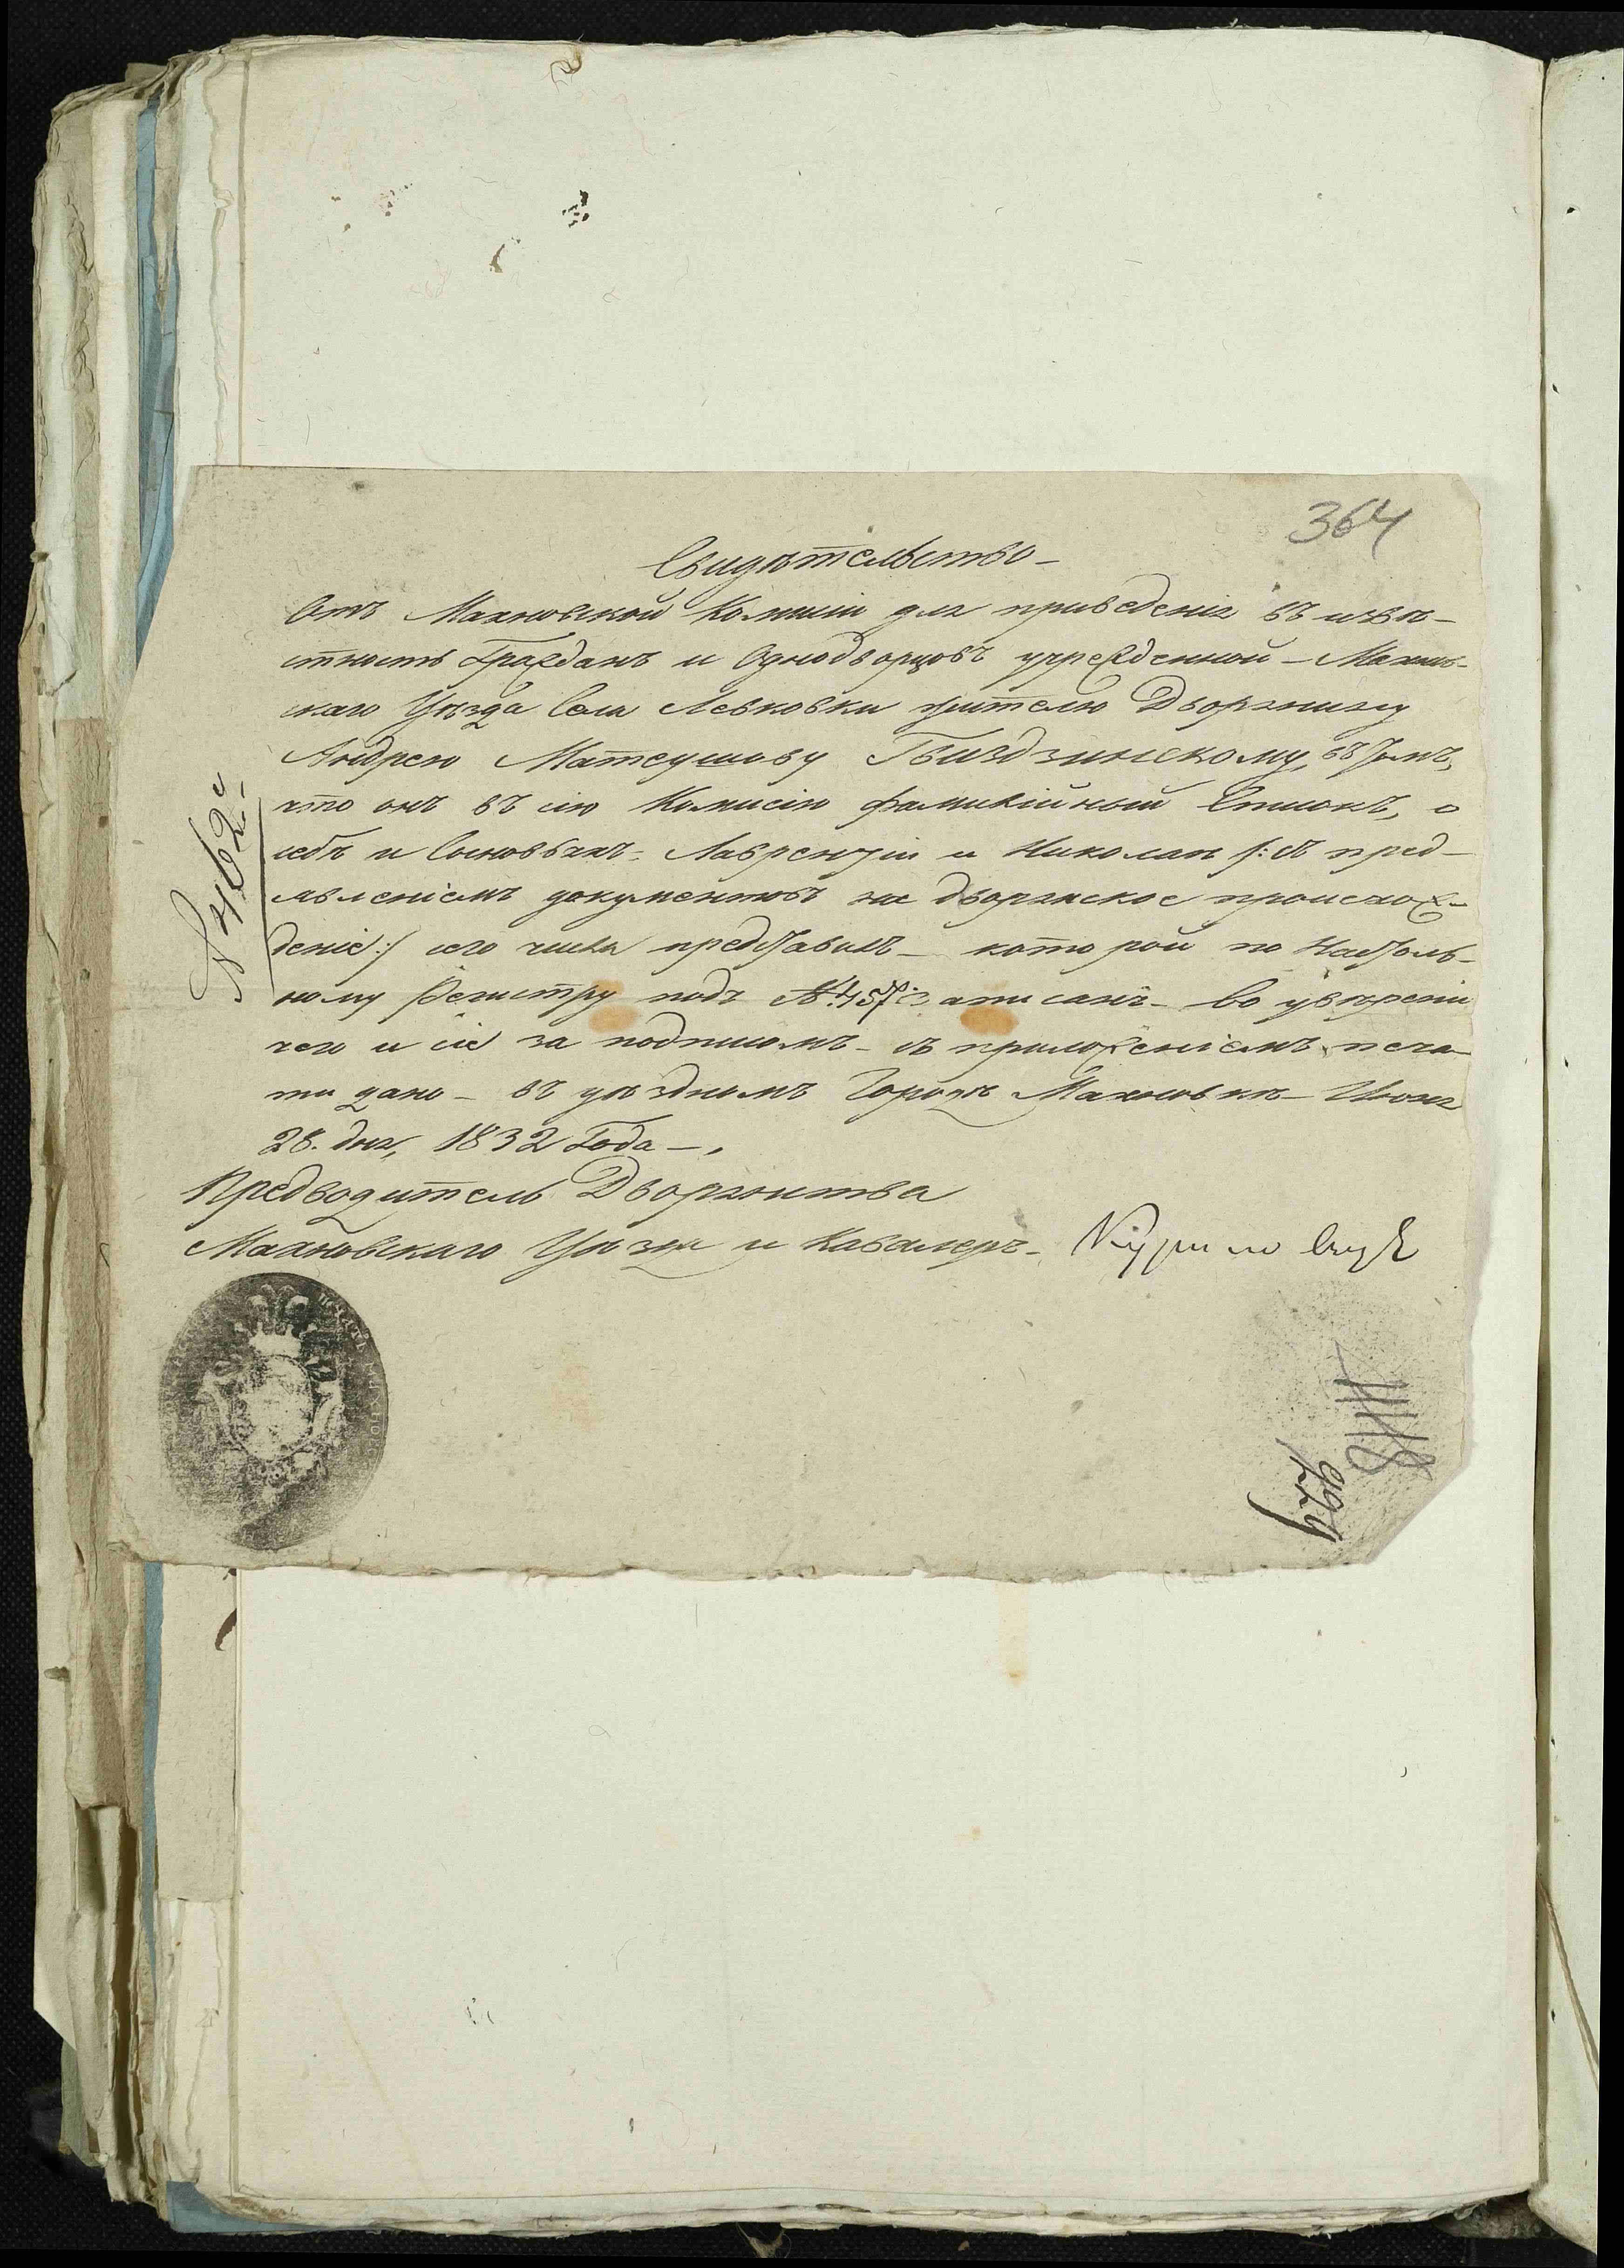 364
Свидѣтельство —
Отъ Махновской Комисіи для приведенія въ извѣ-
стность Гражданъ и Однодворцовъ учрежденной — Махнов-
скаго Уѣзда Села Левковки жителю Дворянину
Андрею Матеушову Гвиздзинскому, въ томъ,
что онъ въ сію Комисію фамилійный Списокъ, о
себѣ и Сыновьяхъ: Лаврентіи и Николаѣ /: съ пред-
явленіемъ документовъ на дворянское происхож-
деніе :/ сего числа представилъ — которой по Настоль-
ному Регистру подъ №. 457 записанъ — Во увѣреніи
чего и сіе за подписомъ — съ приложеніемъ печа-
ти дано — въ уѣздномъ Городѣ Махновкѣ — Июня
28. дня, 1832 Года —,
Предводитель Дворянства
Махновскаго Уѣзда и Кавалеръ —
№ 462